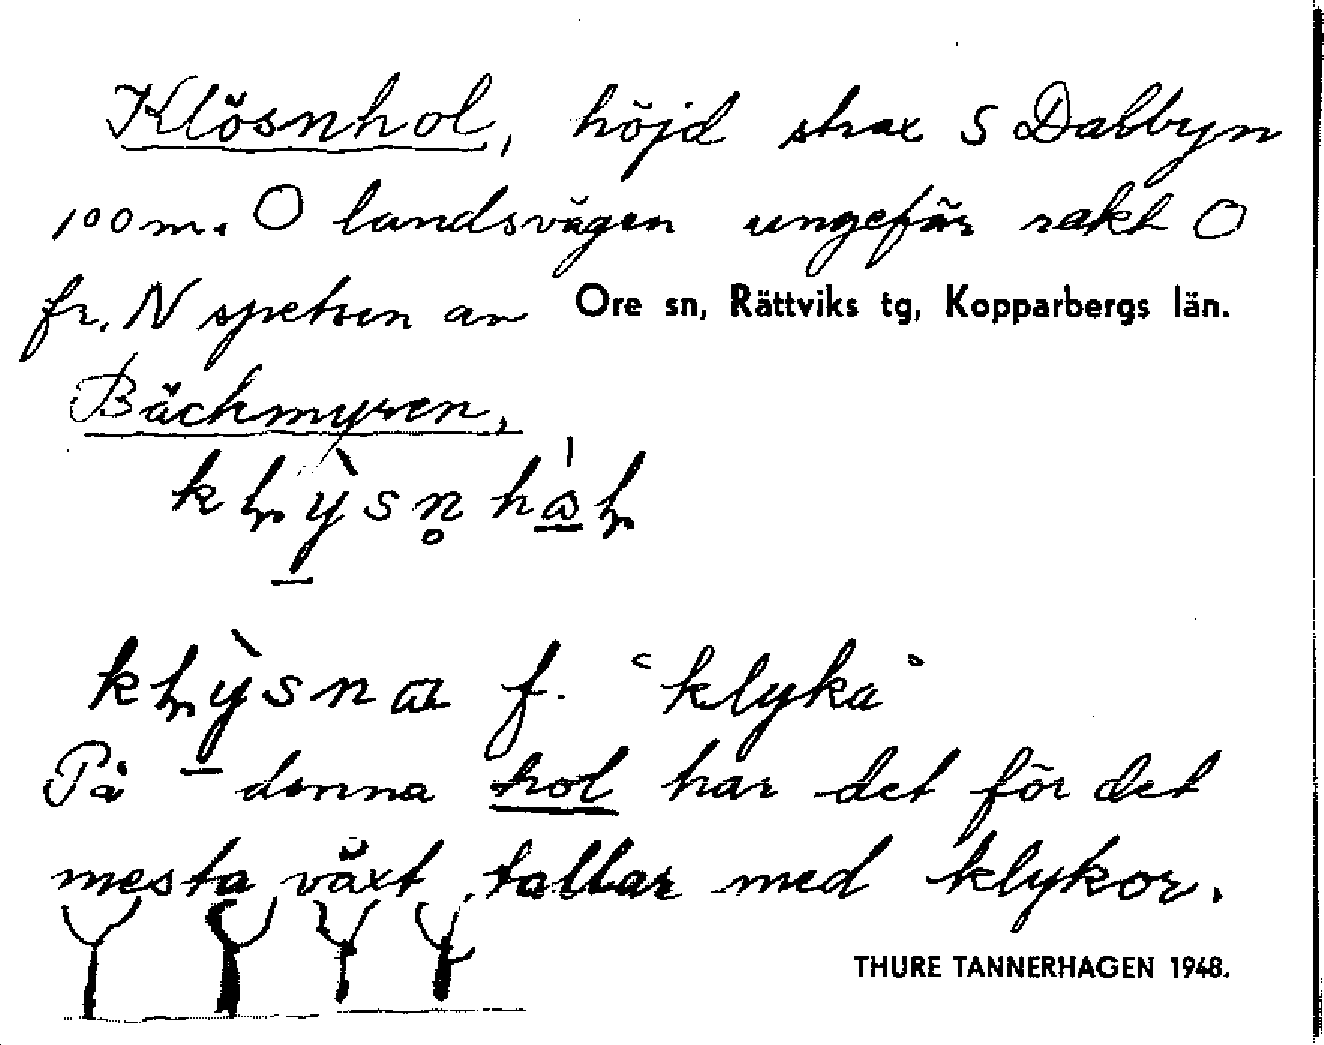 Klösnhol, höjd strax S Dalbyn
100 m. O landsvägen ungefär rakt O
fr. N spetsen av
Ore sn, Rättviks tg, Kopparbergs län.
Bäckmyren,
"klyka"
På denna hol har det för det
mesta växt tallar med klykor.
THURE TANNERHAGEN 1948.